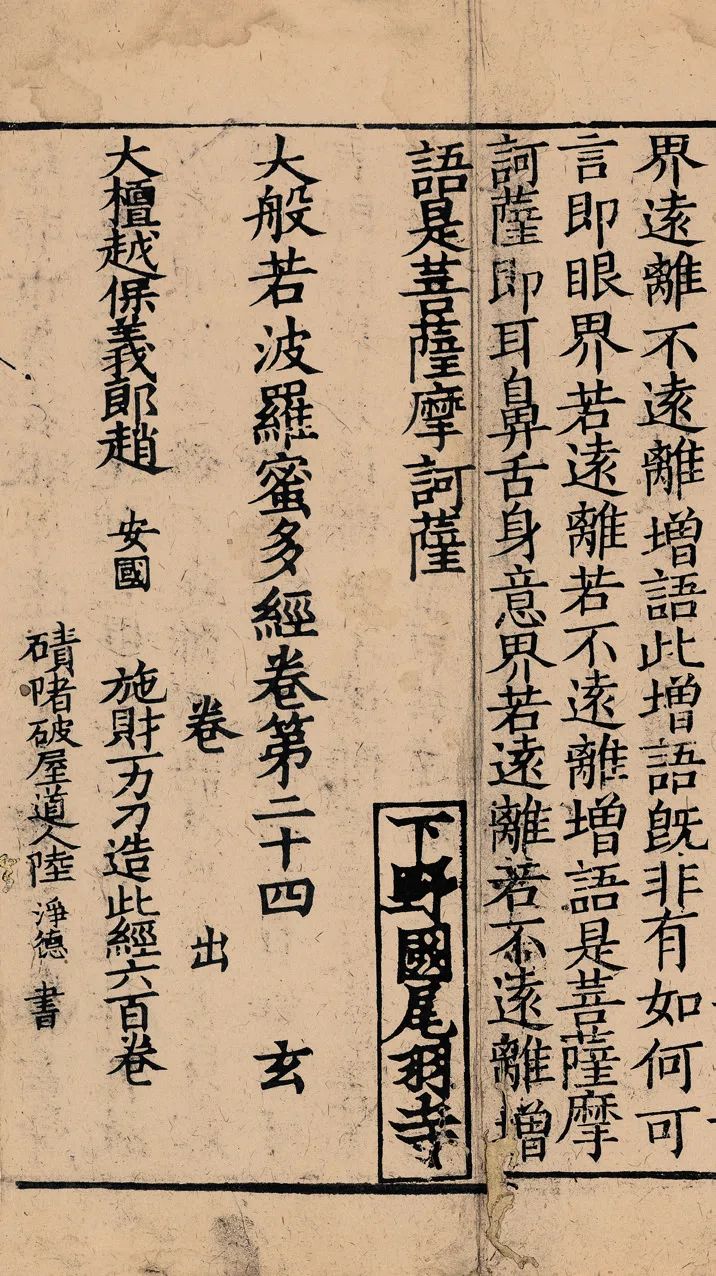 界遠離不遠離增語此增語旣非有如何可
言即眼界若遠離若不遠離增語是菩薩摩
訶薩即耳鼻舌身意界若遠離若不遠離增
語是菩薩摩訶薩
下野國尾羽寺
大般若波羅蜜多經卷第二十四 玄
卷 出
大檀越保義郎趙 安國 施財一力刀造此經六百卷
磧堵破屋道人陸 淨德 書